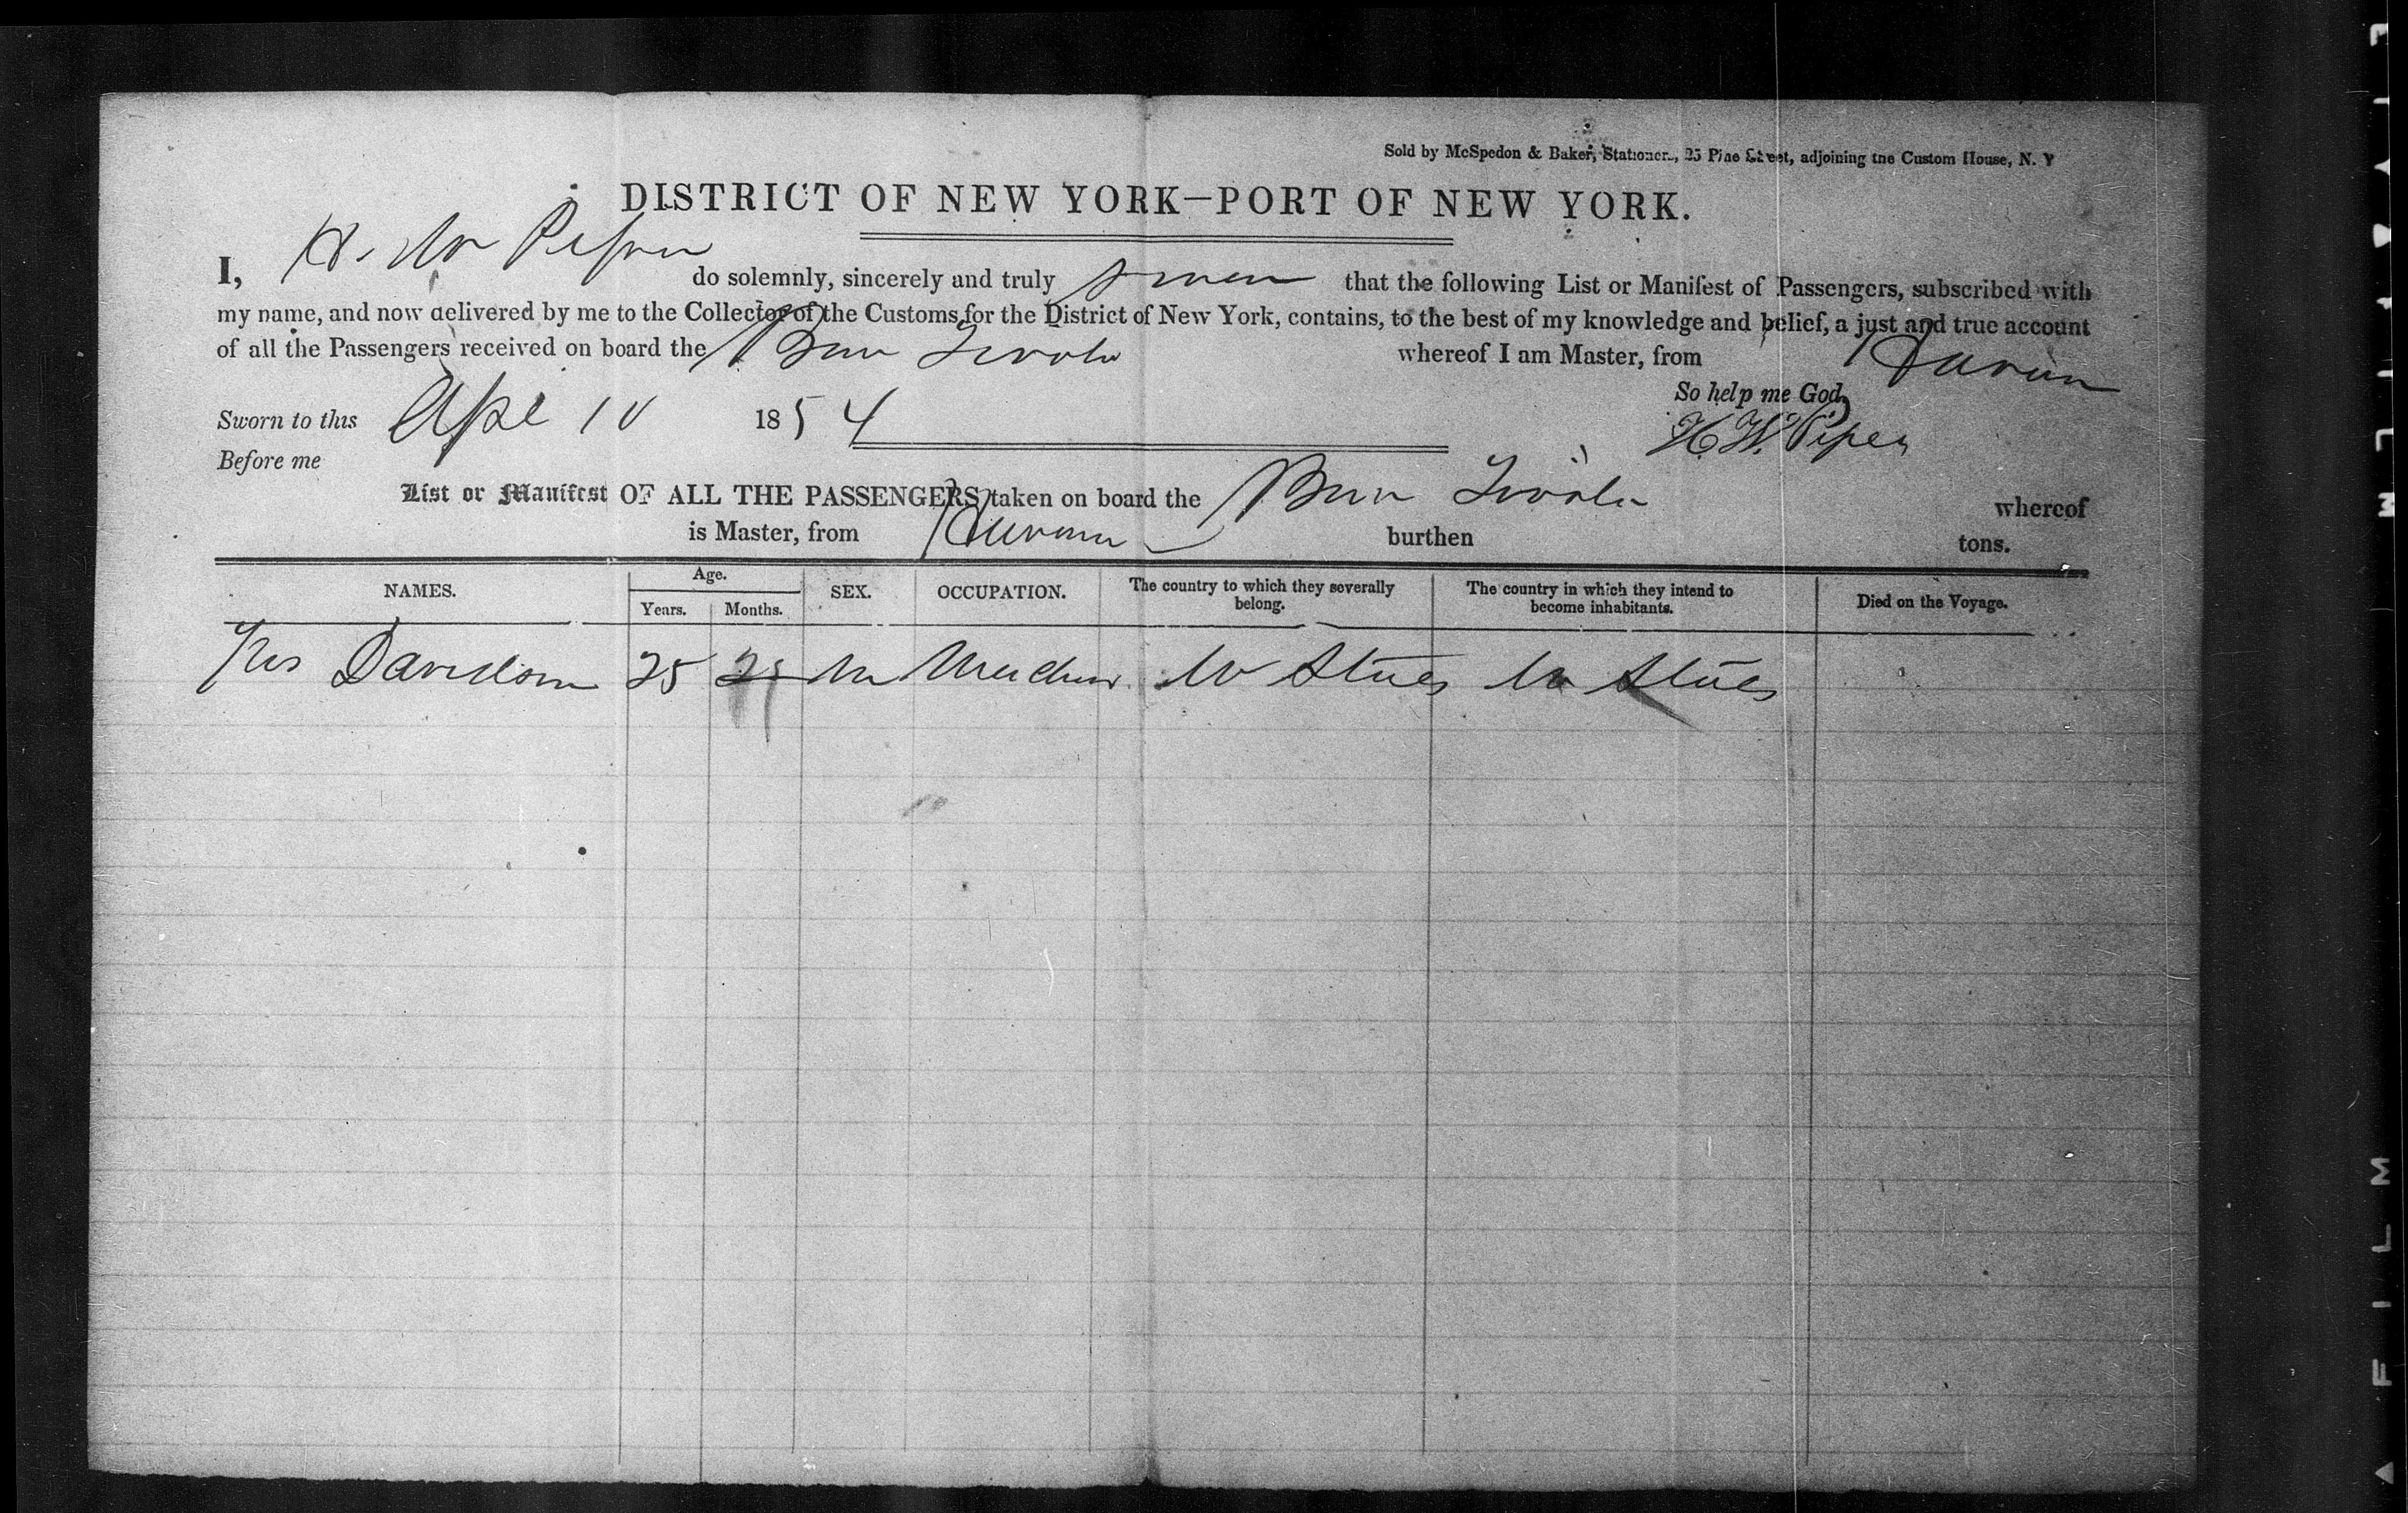 Sold by McSpedon & Baker, Stationers, 25 Pine Street, adjoining the Custom House, N. Y
DISTRICT OF NEW YORK—PORT OF NEW YORK.
I, H. W Piper do solemnly, sincerely and truly swear that the following List or Manifest of Passengers, subscribed with
my name, and now delivered by me to the Collector of the Customs for the District of New York, contains, to the best of my knowledge and belief, a just and true account
of all the Passengers received on board the whereof I am Master, from
So help me God,
Sworn to this Apl 10 1854
H. W. Piper
Before me
List or Manifest OF ALL THE PASSENGERS taken on board the whereof
is Master, from burthen tons.
NAMES. Age. Years. Months. SEX. OCCUPATION. The country to which they severally belong. The country in which they intend to become inhabitants. Died on the Voyage.
Davidson 25 25 M U States U States
FILM